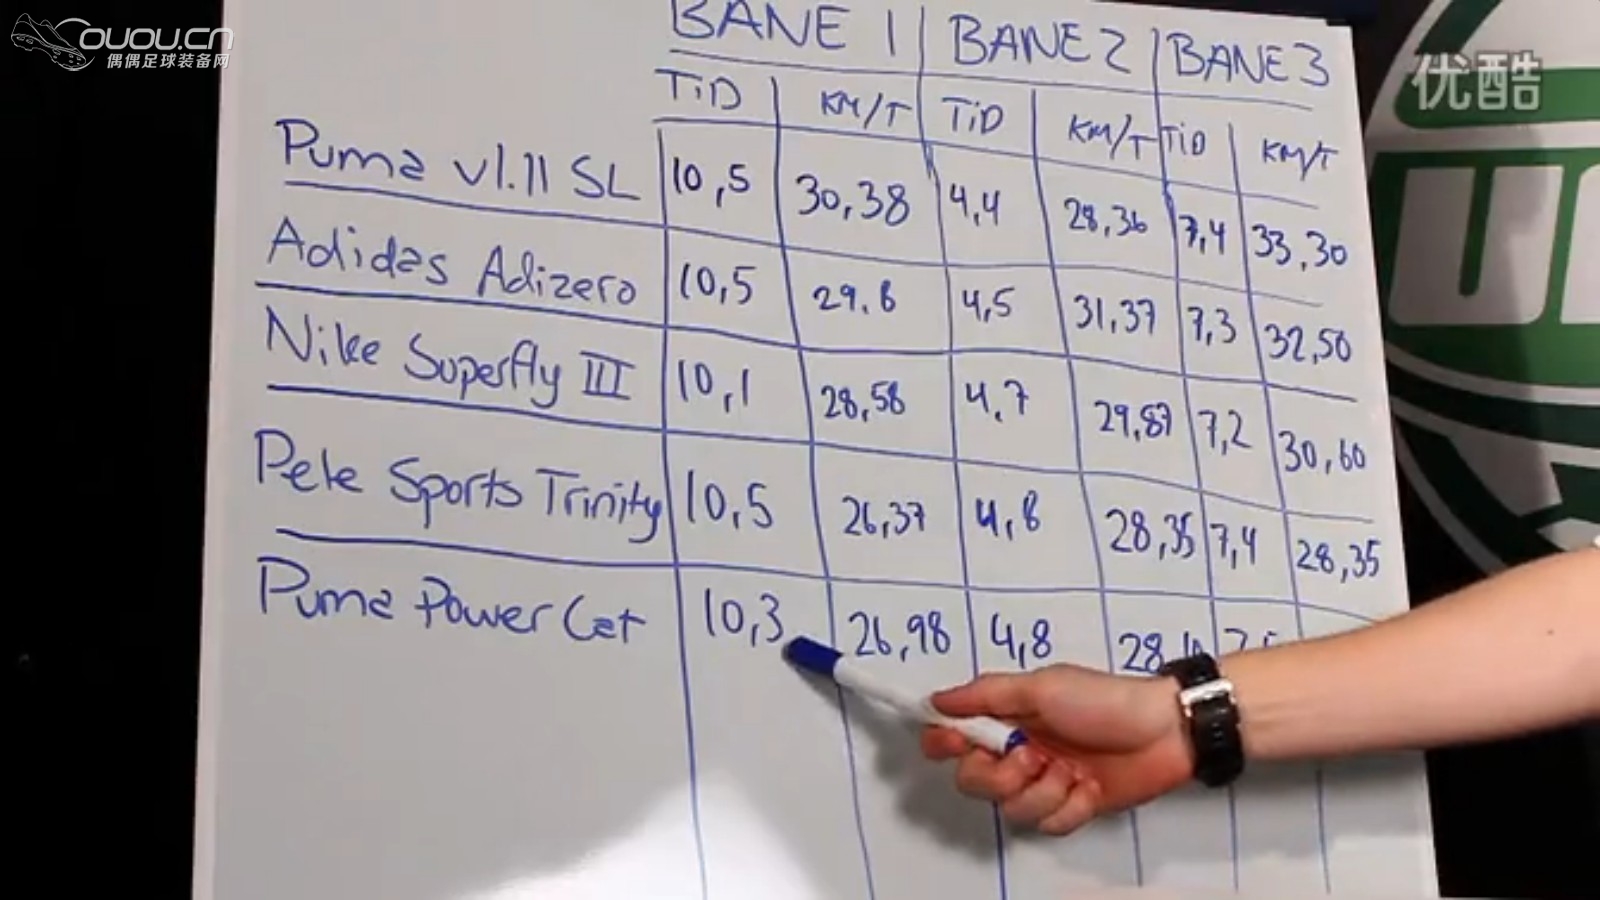 OUOU.CN
偶偶足球装备网
优酷
BANE 1 BANE 2 BANE 3
TiD KM/T TiD KM/T TiD KM/T
Puma v1.11 SL 10,5 30,38 4,4 28,36 7,4 33,30
Adidas Adizero 10,5 29.6 4,5 31,37 7,3 32,50
Nike Superfly III 10,1 28,58 4,7 29,87 7,2 30,60
Pele Sports Trinity 10,5 26,37 4,8 28,35 7,4 28,35
Puma PowerCat 10,3 26,98 4,8